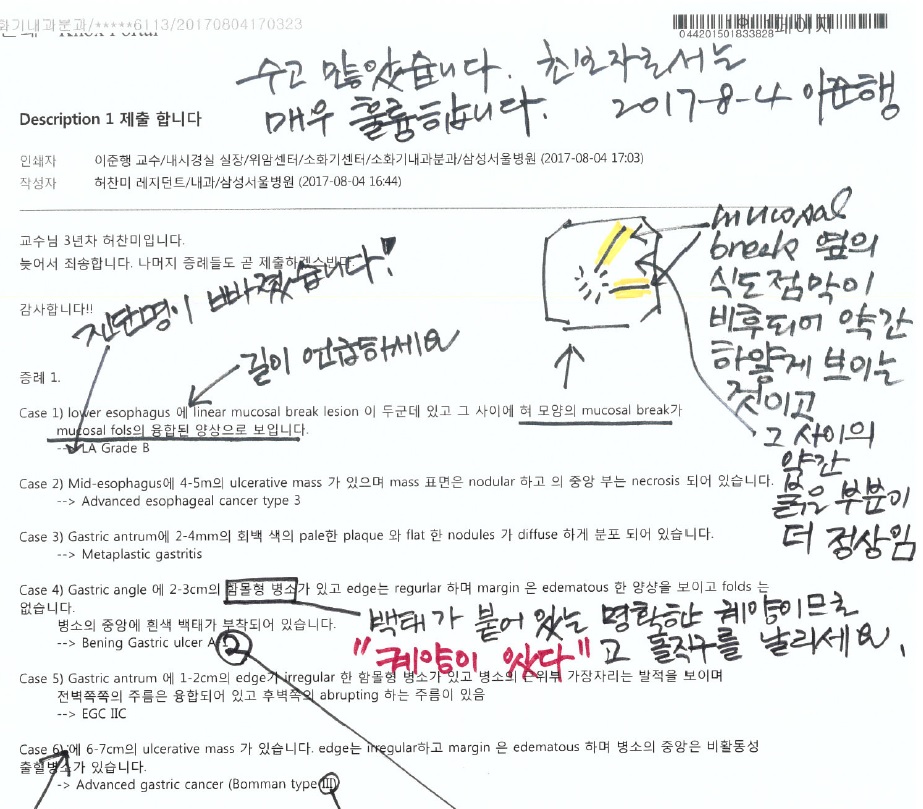 화기내과분과/*****6113/20170804170323
044201501833828
수고 많았습니다. 초보자로서는
매우 훌륭합니다. 2017-8-4 이준행
Description 1 제출 합니다
인쇄자 이준행 교수/내시경실 실장/위암센터/소화기센터/소화기내과분과/삼성서울병원 (2017-08-04 17:03)
작성자 허찬미 레지던트/내과/삼성서울병원 (2017-08-04 16:44)
교수님 3년차 허찬미입니다.
늦어서 죄송합니다. 나머지 증례들도 곧 제출하겠습니다.
감사합니다!!
진단명이 빠졌습니다!
길이 언급하세요
mucosal
break 옆의
식도점막이
비후되어 약간
하얗게 보이는
것이고
그 사이의
약간
붉은 부분이
더 정상임
증례 1.
Case 1) lower esophagus 에 linear mucosal break lesion 이 두군데 있고 그 사이에 혀 모양의 mucosal break가
mucosal fols의 융합된 양상으로 보입니다.
--> LA Grade B
Case 2) Mid-esophagus에 4-5m의 ulcerative mass 가 있으며 mass 표면은 nodular 하고 의 중앙 부는 necrosis 되어 있습니다.
--> Advanced esophageal cancer type 3
Case 3) Gastric antrum에 2-4mm의 회백 색의 pale한 plaque 와 flat 한 nodules 가 diffuse 하게 분포 되어 있습니다.
--> Metaplastic gastritis
Case 4) Gastric angle 에 2-3cm의 함몰형 병소가 있고 edge는 regurlar 하며 margin 은 edematous 한 양상을 보이고 folds 는
없습니다.
병소의 중앙에 흰색 백태가 부착되어 있습니다.
--> Bening Gastric ulcer A
2
백태가 붙어 있는 명확한 궤양이므로
"궤양이 있다" 고 돌직구를 날리세요.
Case 5) Gastric antrum 에 1-2cm의 edge가 irregular 한 함몰형 병소가 있고 병소의 근위부 가장자리는 발적을 보이며
전벽쪽쪽의 주름은 융합되어 있고 후벽쪽의 abrupting 하는 주름이 있음
--> EGC IIC
Case 6) 에 6-7cm의 ulcerative mass 가 있습니다. edge는 irregular하고 margin 은 edematous 하며 병소의 중앙은 비활동성
출혈병소가 있습니다.
--> Advanced gastric cancer (Bomman type III)